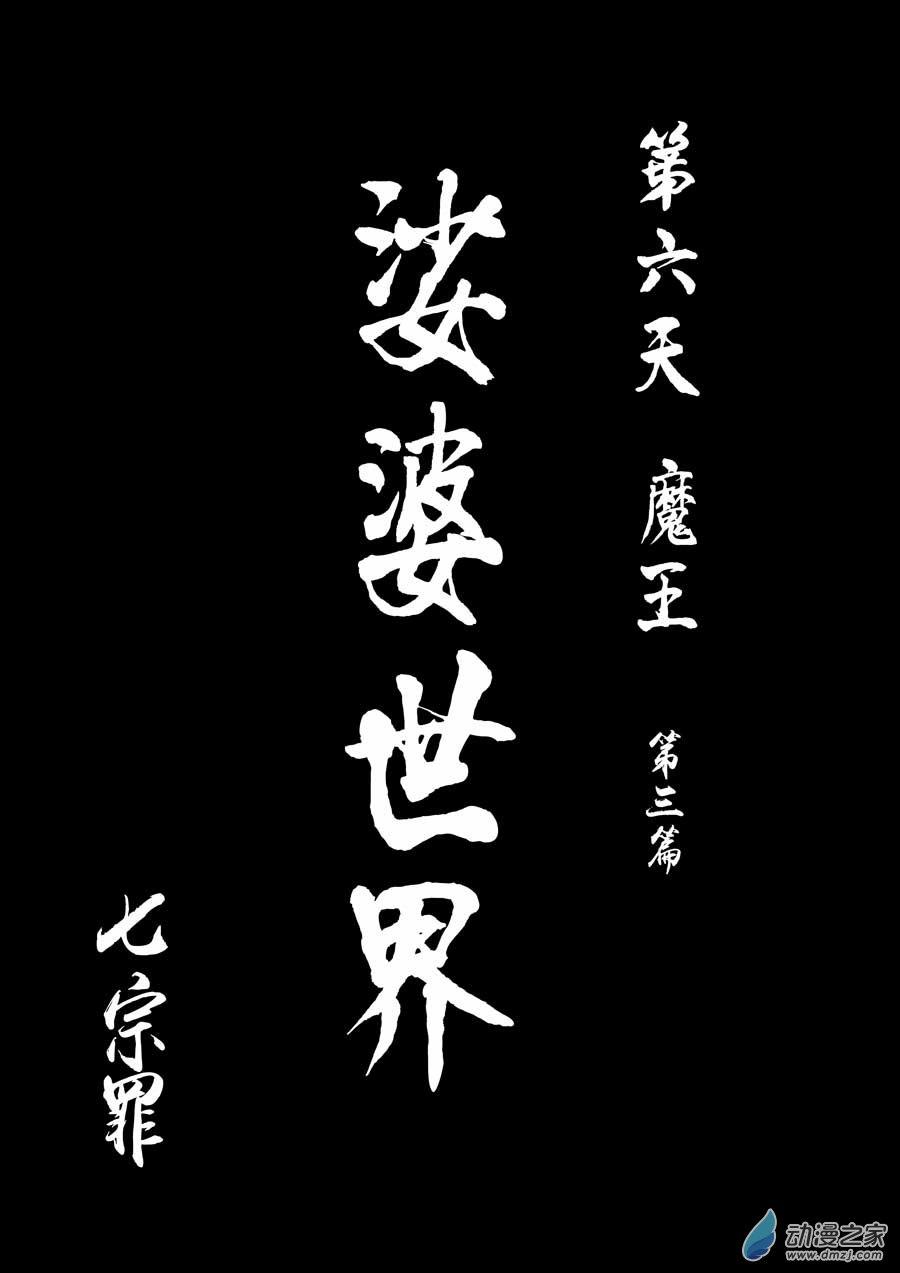 第六天 魔王 第三篇
娑婆世界
七宗罪
动漫之家
www.dmzj.com